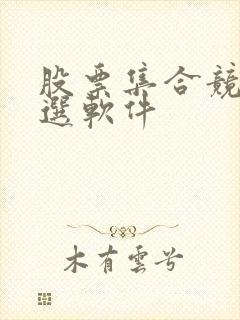 股票集合競
選軟件
木有雲兮